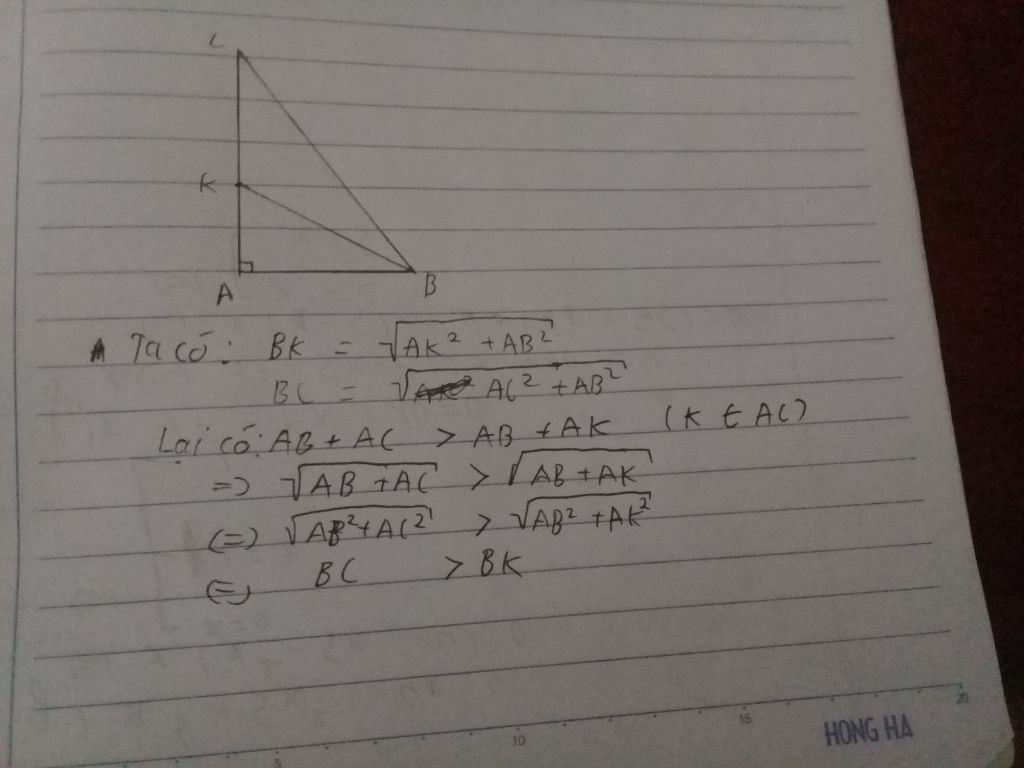 C
K
A
B
Ta có: BK = √AK² + AB²
BC = √AC² + AB²
Lại có: AB + AC > AB + AK (K ∈ AC)
=> √AB + AC > √AB + AK
(=) √AB² + AC² > √AB² + AK²
(=) BC > BK
5 10 15 20
HONG HA